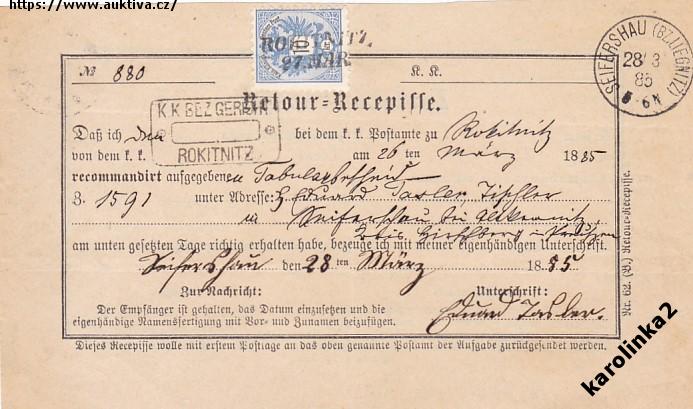 https://www.auktiva.cz/
10
ROKITNITZ
27. MÄR.
SEIFERSHAU (BZ. LIEGNITZ)
28/3
85
5-6N
№ 880
K. K.
Retour=Recepisse.
K.K. BEZ GERICHT
ROKITNITZ
Daß ich den bei dem k. k. Postamte zu Rokitnitz
von dem k. k. am 26 ten März 1885
recommandirt aufgegebenen Tabularbescheid
Z. 1591 unter Adresse: Eduard Tasler, Tischler
in Seifershau bei Altkemnitz
Kreis Hirschberg in Preußen
am unten gesetzten Tage richtig erhalten habe, bezeuge ich mit meiner eigenhändigen Unterschrift.
Seifershau den 28 ten März 1885
Zur Nachricht:
Unterschrift:
Der Empfänger ist gehalten, das Datum einzusetzen und die
eigenhändige Namensfertigung mit Vor- und Zunamen beizufügen.
Eduard Tasler.
Dieses Recepisse wolle mit erstem Posttage an das oben genannte Postamt der Aufgabe zurückgesendet werden.
Nr. 62. (B.) Retour-Recepisse.
karolinka2